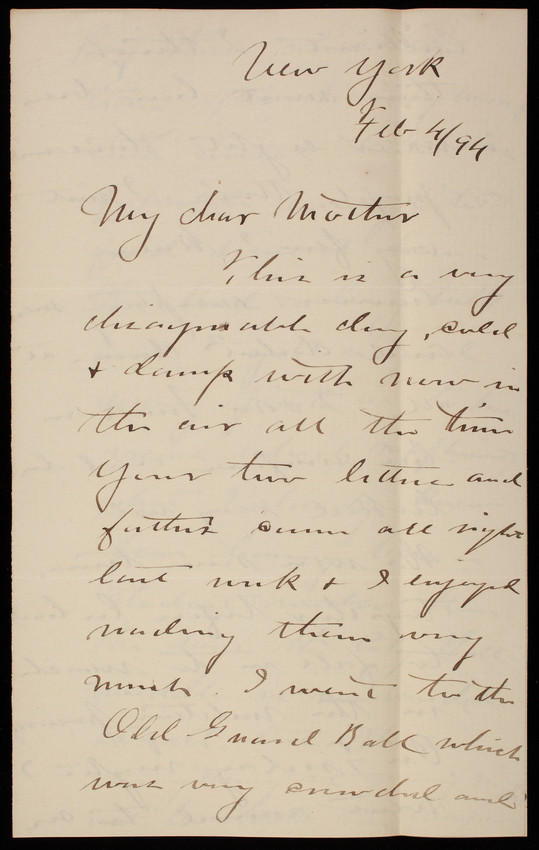 New York
Feb 4/94
My dear Mother
This is a very
disagreeable day, cold
& damp with snow in
the air all the time
Your two letters and
father's came all right
last week & I enjoyed
reading them very
much. I went to the
Old Guard Ball which
was very crowded and